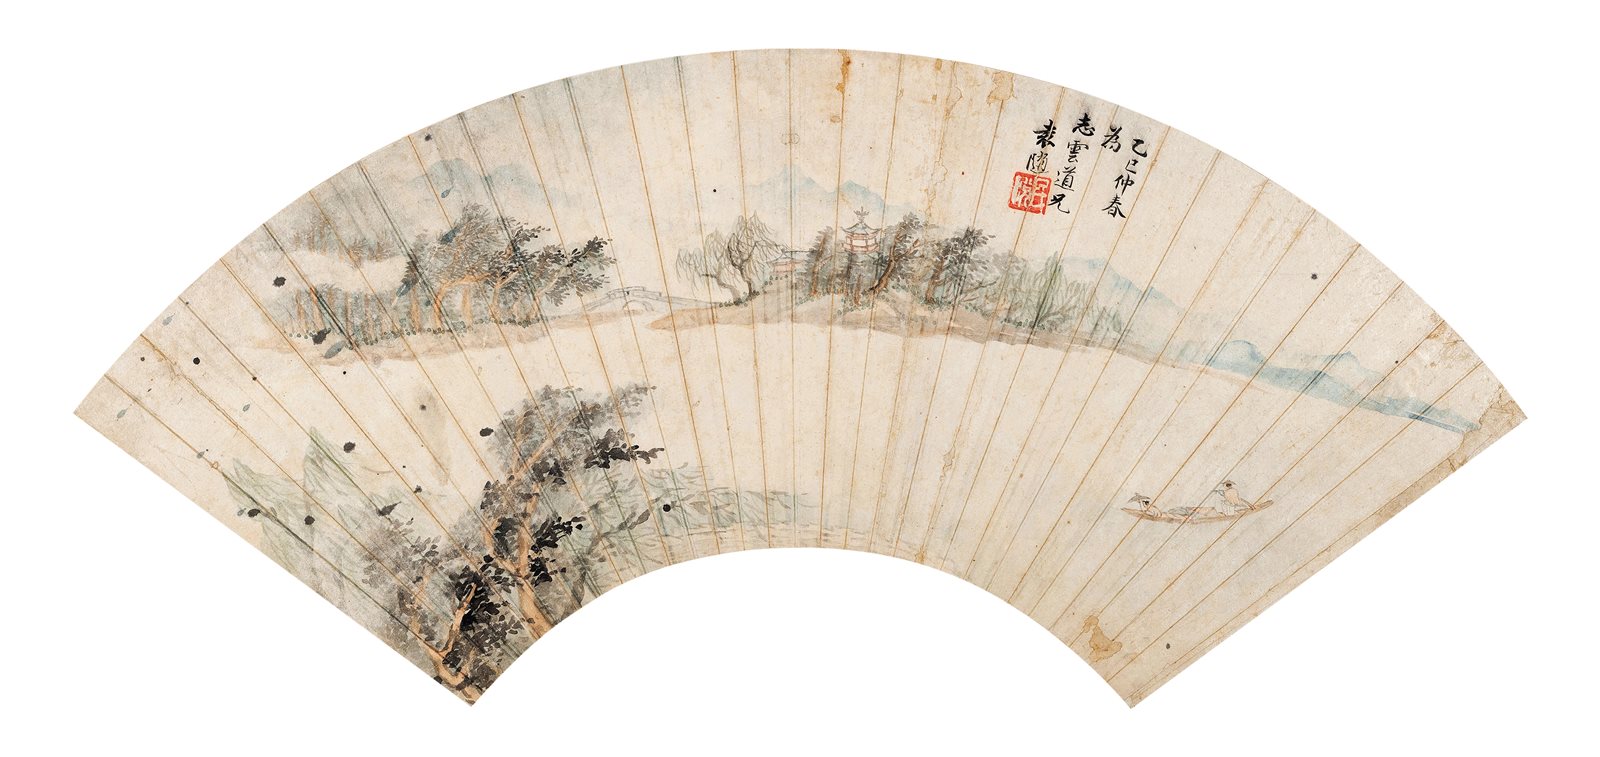 乙巳仲春
為
志雲道兄
袁随